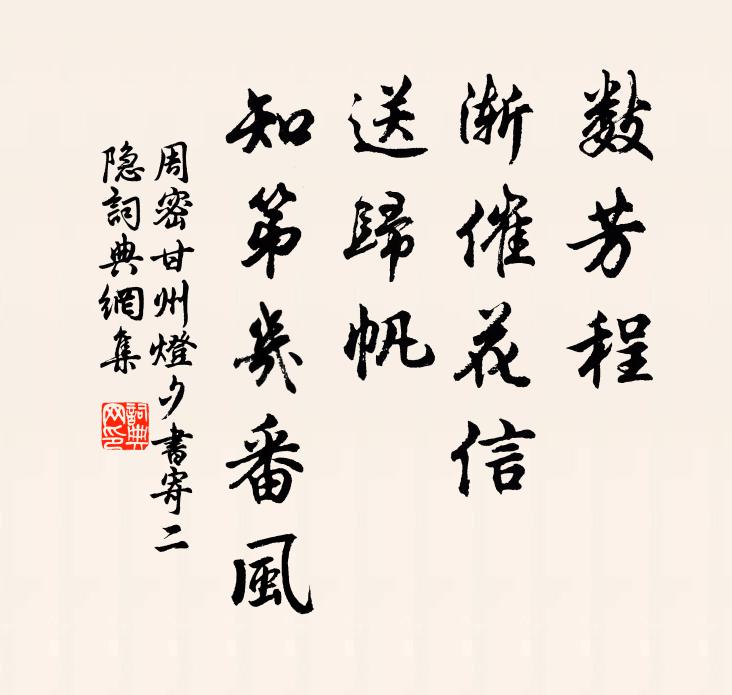 数芳程
渐催花信
送歸帆
知第幾番風
周密甘州燈夕書寄二
隐詞典網集
詞典网印